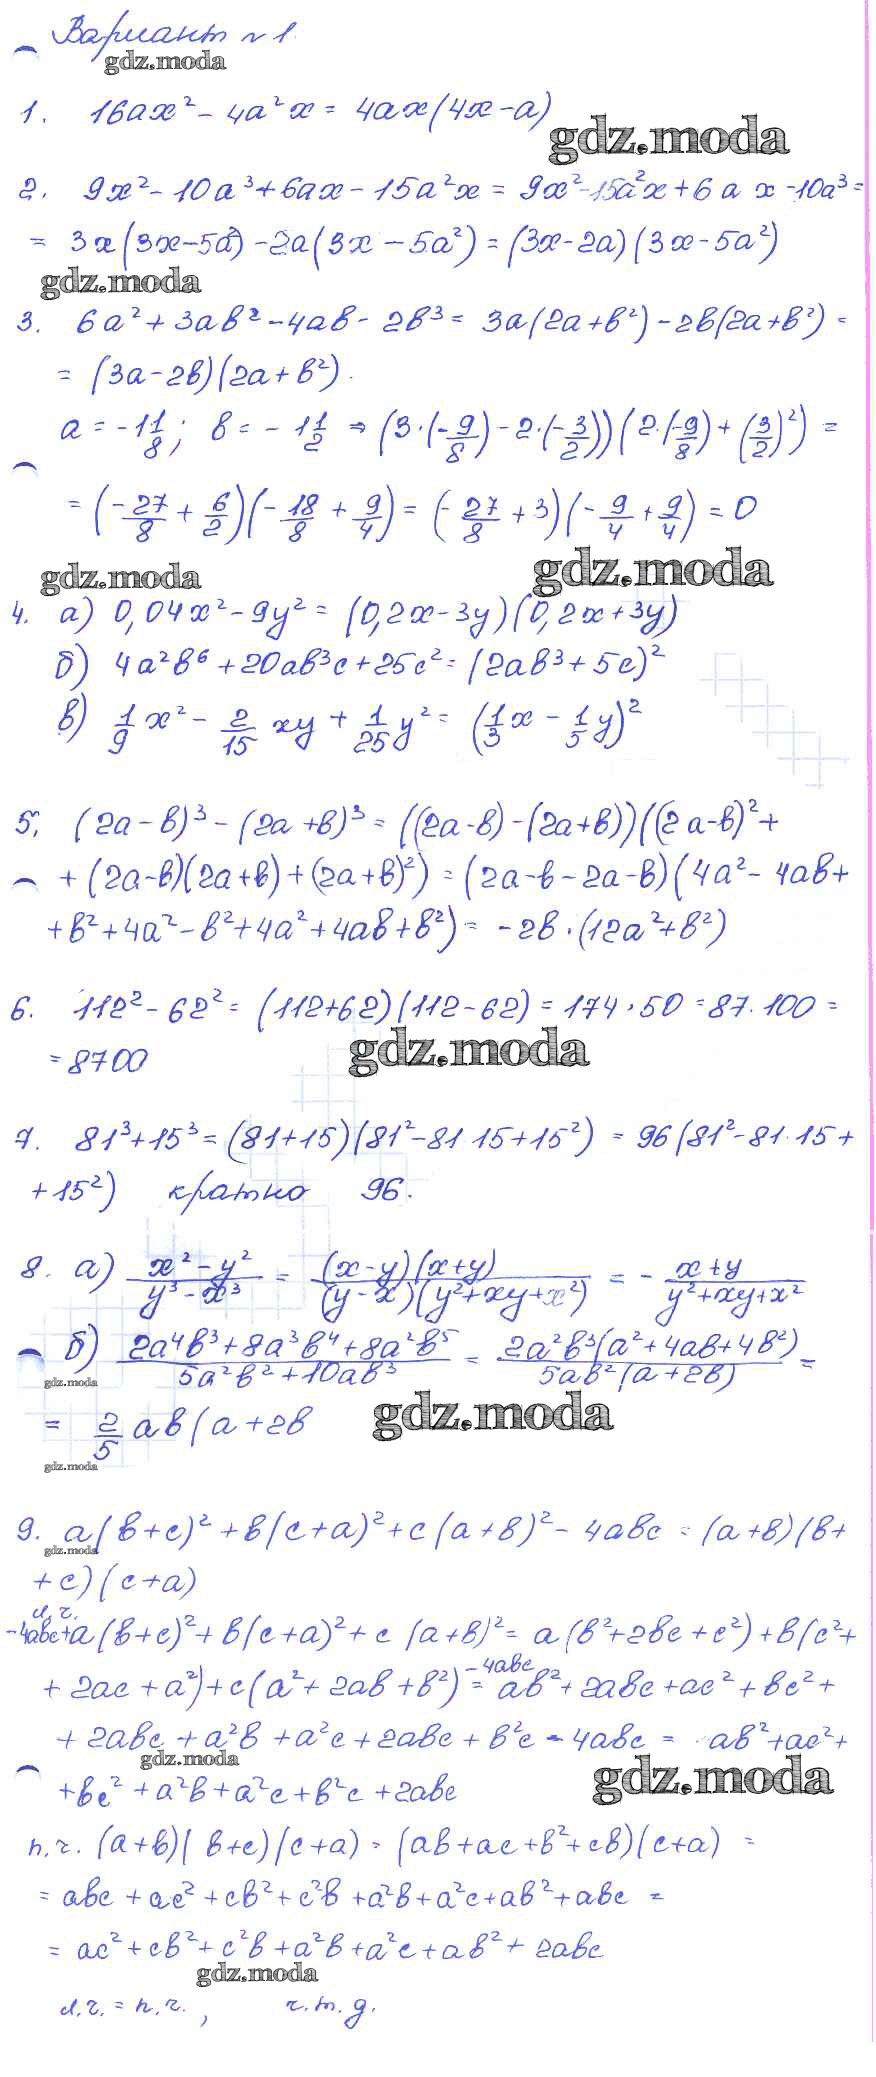 Вариант №1.
gdz.moda
1. 16ax² - 4a²x = 4ax(4x-a)
gdz.moda
2. 9x² - 10a³ + 6ax - 15a²x = 9x² - 15a²x + 6ax - 10a³ =
= 3x(3x-5a²) - 2a(3x - 5a²) = (3x-2a)(3x-5a²)
gdz.moda
3. 6a² + 3ab² - 4ab - 2b³ = 3a(2a+b²) - 2b(2a+b²) =
= (3a-2b)(2a+b²).
a = -1 1/8; b = -1 1/2 ⇒ (3·(-9/8) - 2·(-3/2))(2·(-9/8) + (3/2)²) =
= (-27/8 + 6/2)(-18/8 + 9/4) = (-27/8 + 3)(-9/4 + 9/4) = 0
gdz.moda gdz.moda
4. а) 0,04x² - 9y² = (0,2x-3y)(0,2x+3y)
б) 4a²b⁶ + 20ab³c + 25c² = (2ab³ + 5c)²
в) 1/9 x² - 2/15 xy + 1/25 y² = (1/3 x - 1/5 y)²
5. (2a-b)³ - (2a+b)³ = ((2a-b) - (2a+b))((2a-b)² +
+ (2a-b)(2a+b) + (2a+b)²) = (2a-b-2a-b)(4a² - 4ab +
+ b² + 4a² - b² + 4a² + 4ab + b²) = -2b·(12a²+b²)
6. 112² - 62² = (112+62)(112-62) = 174·50 = 87·100 =
= 8700
gdz.moda
7. 81³+15³ = (81+15)(81²-81·15+15²) = 96(81²-81·15+
+15²) кратно 96.
8. а) x²-y² / y³-x³ = (x-y)(x+y) / (y-x)(y²+xy+x²) = - x+y / y²+xy+x²
б) 2a⁴b³+8a³b⁴+8a²b⁵ / 5a²b²+10ab³ = 2a²b³(a²+4ab+4b²) / 5ab²(a+2b) =
gdz.moda
= 2/5 ab(a+2b
gdz.moda
gdz.moda
9. a(b+c)² + b(c+a)² + c(a+b)² - 4abc = (a+b)(b+
gdz.moda
+c)(c+a)
л.ч.
-4abc+a(b+c)² + b(c+a)² + c(a+b)² = a(b²+2bc+c²) + b(c²+
+ 2ac + a²) + c(a² + 2ab + b²) -4abc = ab² + 2abc + ac² + bc² +
+ 2abc + a²b + a²c + 2abc + b²c - 4abc = ab² + ac² +
gdz.moda
+bc² + a²b + a²c + b²c + 2abc
gdz.moda
п.ч. (a+b)(b+c)(c+a) = (ab+ac+b²+cb)(c+a) =
= abc + ac² + cb² + c²b + a²b + a²c + ab² + abc =
= ac² + cb² + c²b + a²b + a²c + ab² + 2abc
gdz.moda
л.ч. = п.ч., ч.т.д.